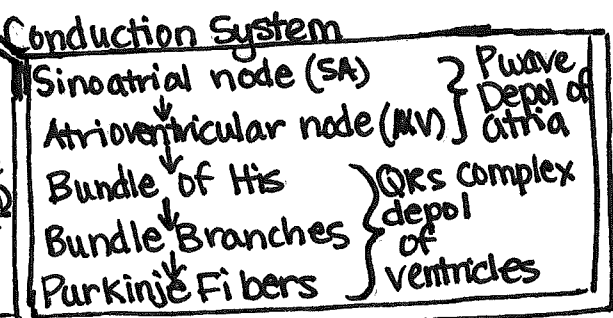 Conduction System
Sinoatrial node (SA)
Atrioventricular node (AV)
Bundle of His
Bundle Branches
Purkinje Fibers
P wave
Depol of
atria
QRS complex
depol
of
ventricles